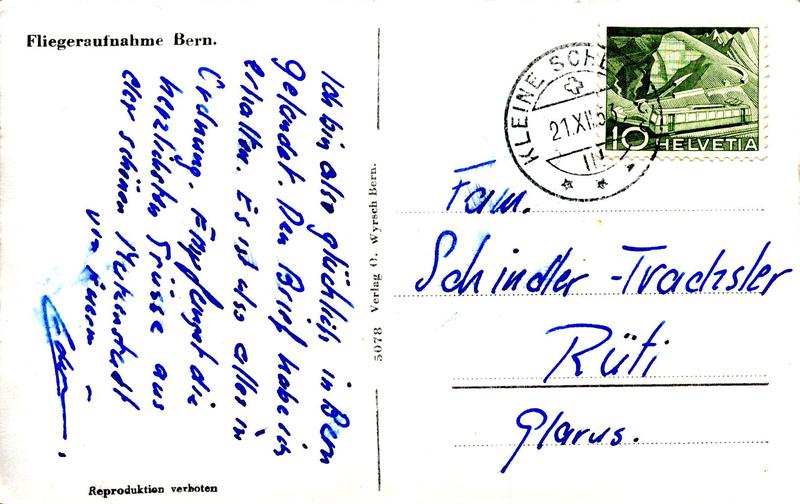 Fliegeraufnahme Bern.
Ich bin also glücklich in Bern
gelandet. Den Brief habe ich
erhalten. Es ist also alles in
Ordnung. Empfanget die
herzlichsten Grüsse aus
der schönen Mutzenstadt
von Euerm -
5078 Verlag O. Wyrsch Bern.
Reproduktion verboten
KLEINE SCHE
21.XII.53
10 HELVETIA
Fam.
Schindler-Trachsler
Rüti
Glarus.